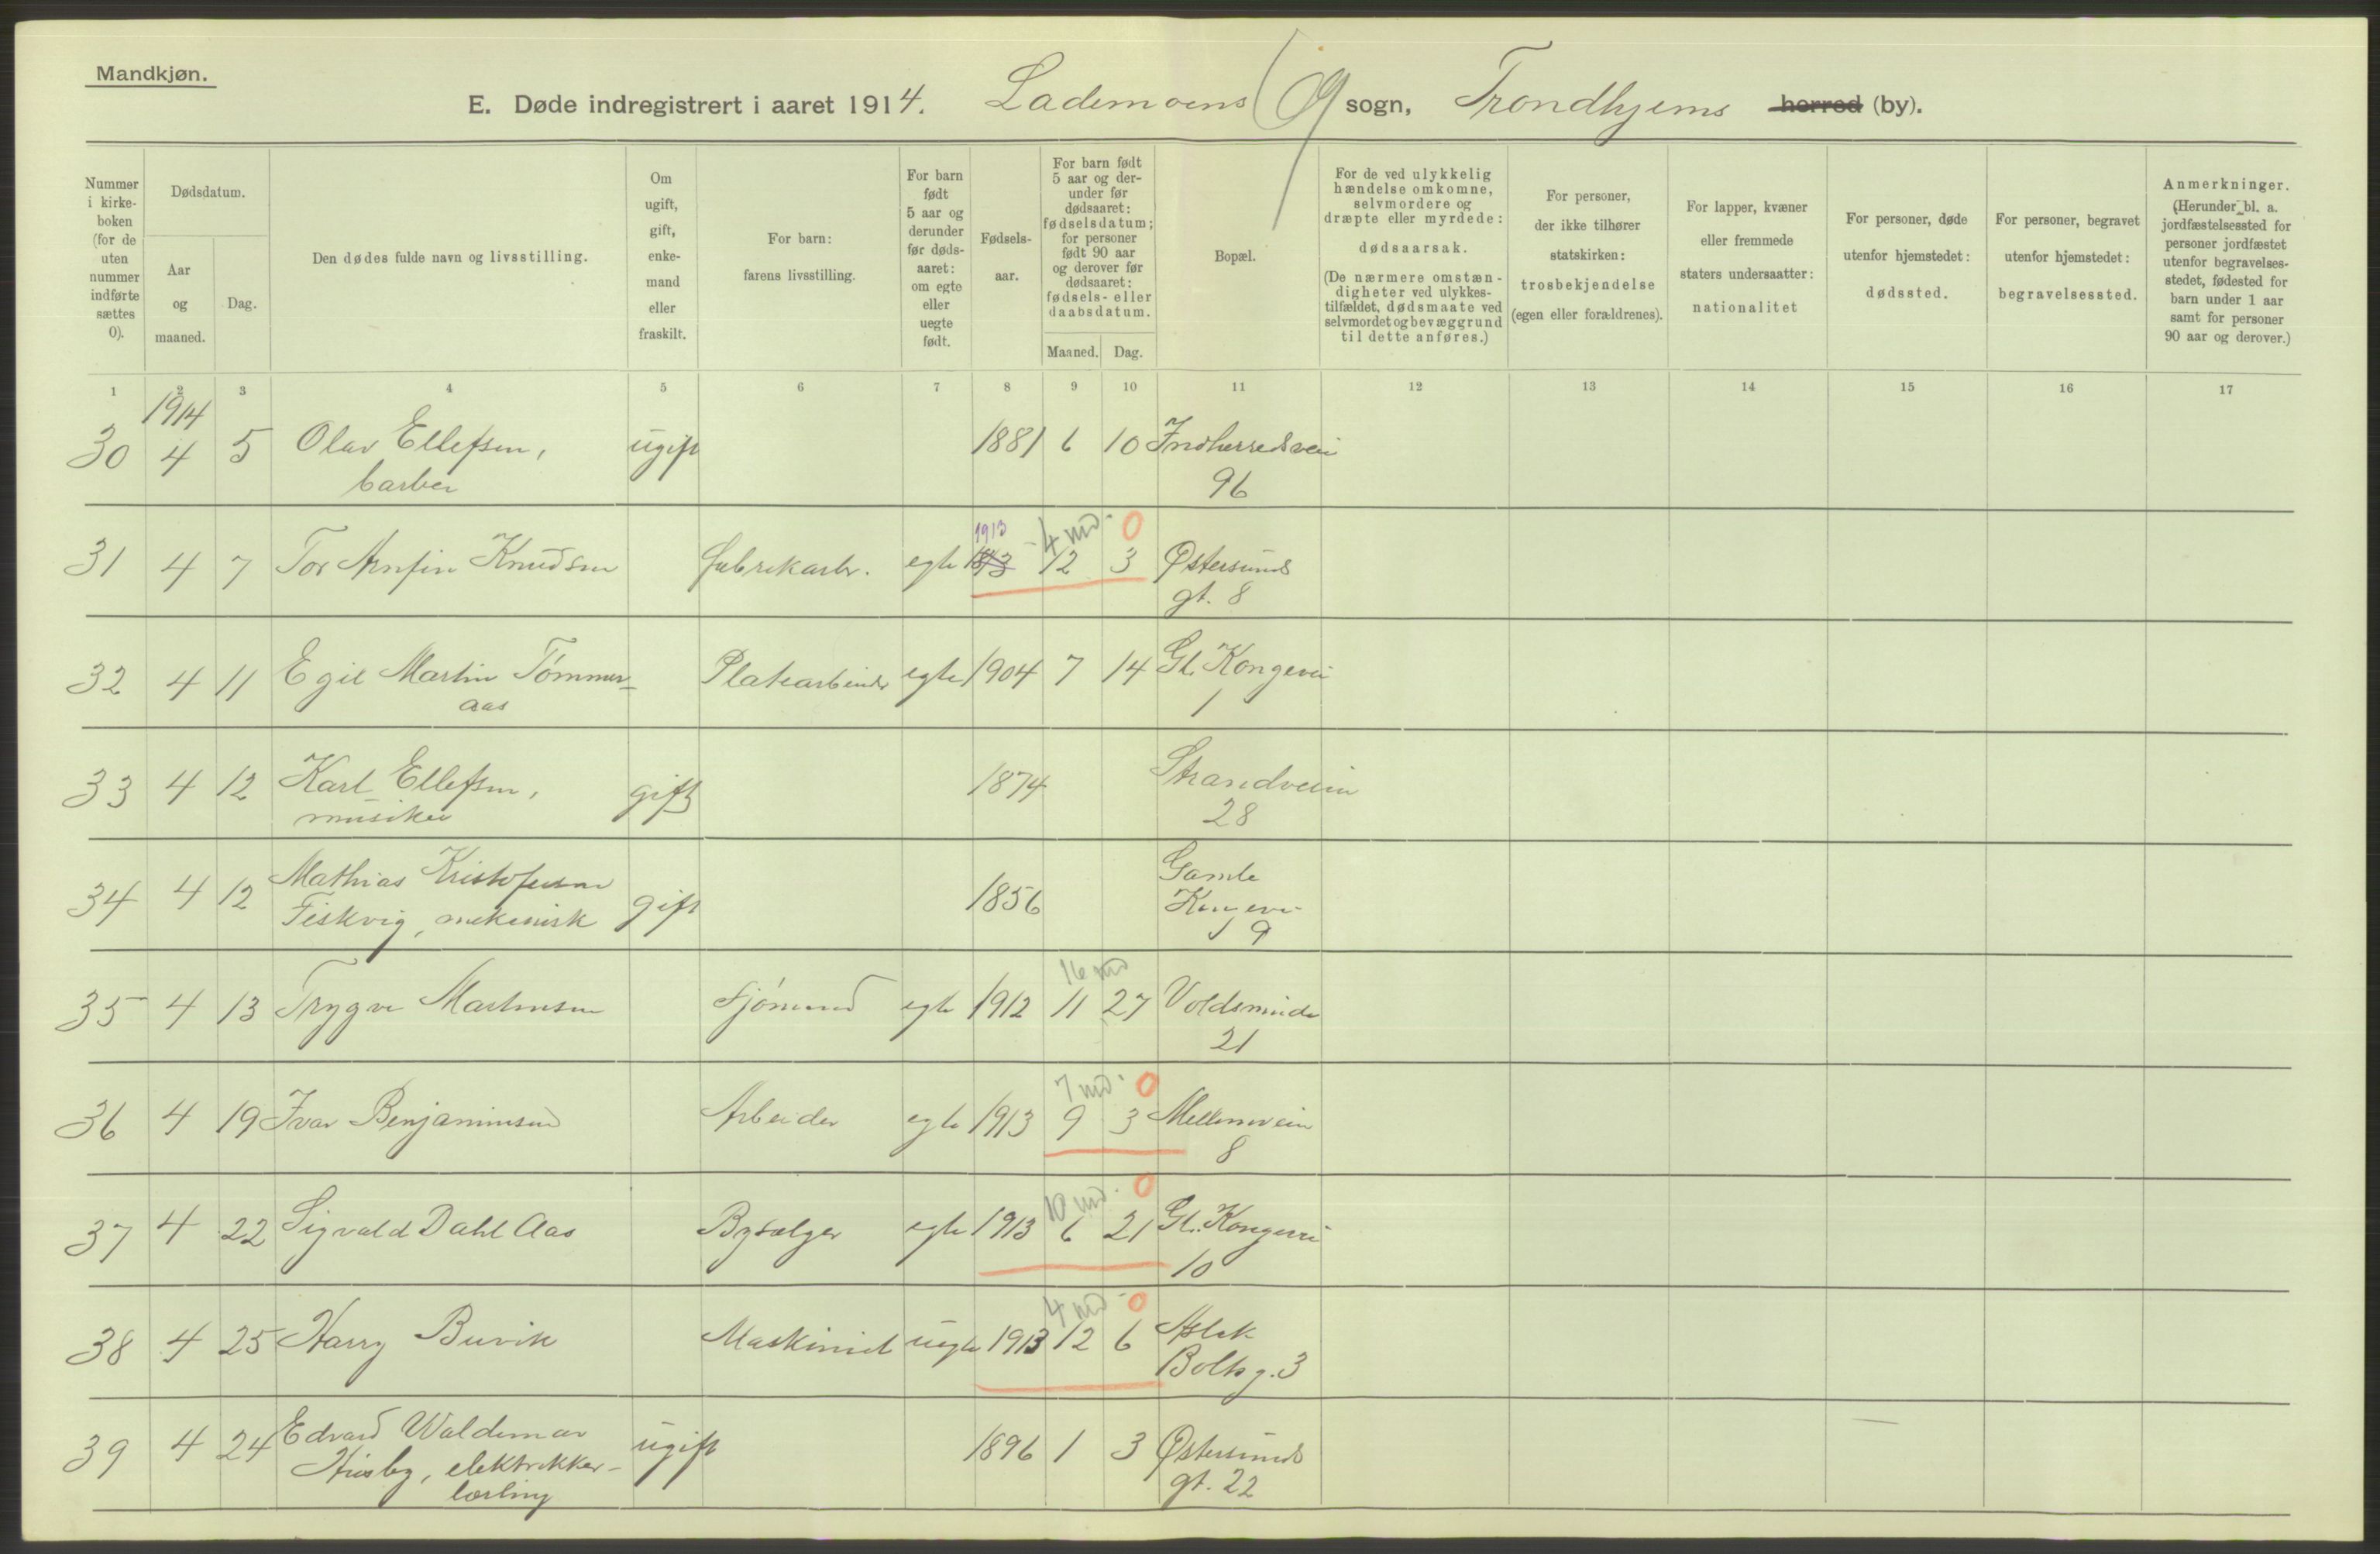 Mandkjøn.
E. Døde indregistrert i aaret 1914. Lademoens (9 sogn, Trondhjems herred (by).
Nummer i kirkeboken (for de uten nummer indførte sættes 0).
Dødsdatum.
Aar og maaned.
Dag.
Den dødes fulde navn og livsstilling.
Om ugift, gift, enkemand eller fraskilt.
For barn: farens livsstilling.
For barn født 5 aar og derunder før dødsaaret: om egte eller uegte født.
Fødselsaar.
For barn født 5 aar og derunder før dødsaaret: fødselsdatum; for personer født 90 aar og derover før dødsaaret: fødsels- eller daabsdatum.
Maaned. Dag.
Bopæl.
For de ved ulykkelig hændelse omkomne, selvmordere og dræpte eller myrdede: dødsaarsak.
(De nærmere omstændigheter ved ulykkestilfældet, dødsmaate ved selvmordet og bevæggrund til dette anføres.)
For personer, der ikke tilhører statskirken: trosbekjendelse (egen eller forældrenes).
For lapper, kvæner eller fremmede staters undersaatter: nationalitet
For personer, døde utenfor hjemstedet: dødssted.
For personer, begravet utenfor hjemstedet: begravelsessted.
Anmerkninger. (Herunder bl. a. jordfæstelsessted for personer jordfæstet utenfor begravelsesstedet, fødested for barn under 1 aar samt for personer 90 aar og derover.)
1 2 3 4 5 6 7 8 9 10 11 12 13 14 15 16 17
1914
30 4 5 Olav Ellefsen, ugift 1881 6 10 Indherredsvei
barber 96
1913 4 md. 0
31 4 7 Tor Arnfin Knudsen fabrikarb. egte 1813 12 3 Østersunds
gt. 8
32 4 11 Egil Martin Tømmer- Platearbeider egte 1904 7 14 Gl. Kongevei
aas 1
33 4 12 Karl Ellefsen, gift 1874 Strandveien
musiker 28
34 4 12 Mathias Kristofersen gift 1856 Gamle
Fiskvig, mekanisk Kongevei
9
16 md
35 4 13 Trygve Martinsen Sjømand egte 1912 11 27 Voldsminde
21
7 md. 0
36 4 19 Ivar Benjaminsen Arbeider egte 1913 9 3 Mellemveien
8
10 md. 0
37 4 22 Sigvald Dahl Aas Bysælger egte 1913 6 21 Gl. Kongevei
10
4 md. 0
38 4 25 Harry Buvik Maskinist uegte 1913 12 6 Aslak
Bolts g. 3
39 4 24 Edvard Waldemar ugift 1896 1 3 Østersunds
Husby, elektrikker- gt. 22
lærling